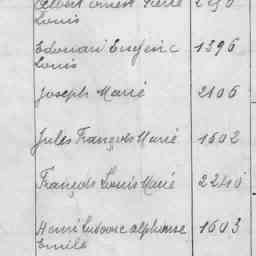 Albert Ernest Pierre
Louis
Edouard Eugène 1396
Louis
Joseph Marie 2106
Jules François Marie 1602
François Louis Marie 2240
Henri Ludovic alphonse 1603
Emile